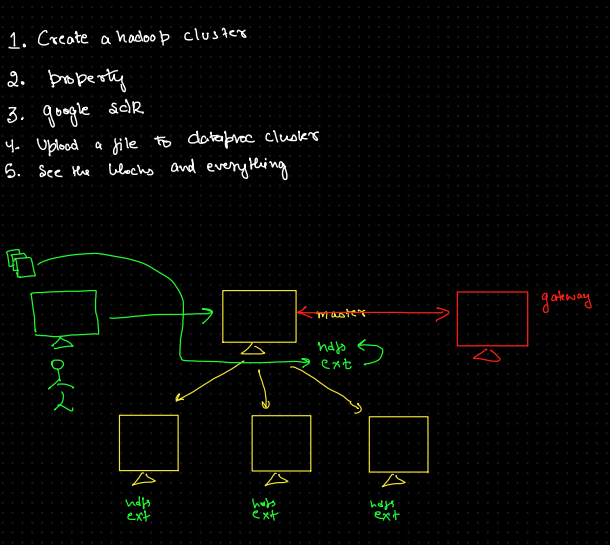 1. Create a hadoop cluster
2. property
3. google sdk
4. Upload a file to dataproc cluster
5. See the blocks and everything
gateway
master
hdfs
ext
hdfs
ext
hdfs
ext
hdfs
ext